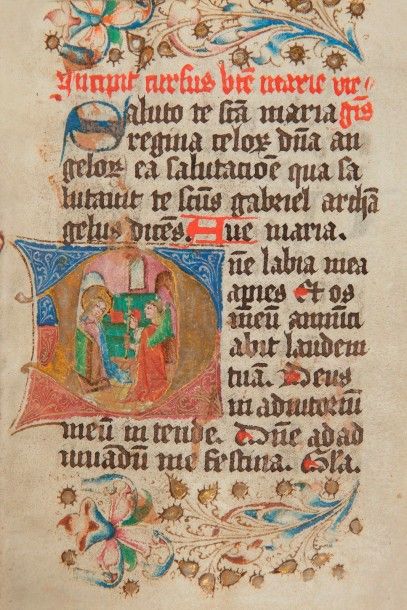 Incipit cursus bte marie vir
Saluto te sca maria ginis
regina celoꝝ dna an
geloꝝ ea salutatioe qua sa
lutauit te scus gabriel archā
gelus dices. Aue maria.
Dne labia mea
apies Et os
meu annuci
abit laudem
tuā. Deus
in adiutoriu
meu in tende. Dne ad ad
iuuadu me festina. Gla.